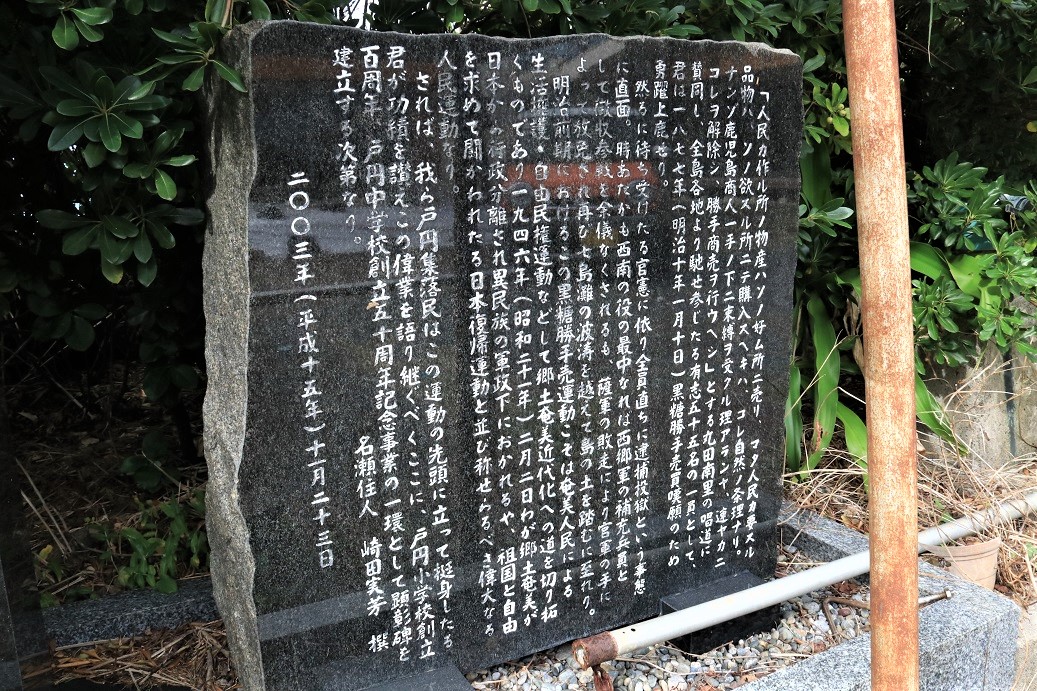 「人民カ作ル所ノ物産ハソノ好ム所ニ売リ、マタ人民カ要スル
品物ハ、ソノ欲スル所ニテ購入スヘキハ、コレ自然ノ条理ナリ。
ナンゾ鹿児島商人一手ノ下ニ束縛ヲ受クル理アランヤ、速ヤカニ
コレヲ解除シ、勝手商売ヲ行ウヘシ」とする丸田南里の唱道に
賛同し、全島各地より馳せ参じたる有志五十五名の一員として、
君は一八七七年(明治十年一月十日)黒糖勝手売買嘆願のため
勇躍上鹿せり。
然るに待ち受けたる官憲に依り全員直ちに逮捕投獄という事態
に直面。時あたかも西南の役の最中なれば西郷軍の補充兵員と
して徴収参戦を余儀なくされるも、薩軍の敗走により官軍の手に
よって放免され再び七島灘の波涛を越えて島の土を踏むに至れり。
明治前期におけるこの黒糖勝手売運動こそは奄美人民による
生活擁護・自由民権運動などして郷土奄美近代化への道を切り拓
くものであり一九四六年(昭和二十一年)二月二日わが郷土奄美が
日本から行政分離され異民族の軍政下におかれるや、祖国と自由
を求めて闘かわれたる日本復帰運動と並び称せらるべき偉大なる
人民運動なり。
されば、我ら戸円集落民はこの運動の先頭に立って挺身したる
君が功積を讃えこの偉業を語り継ぐべくここに、戸円小学校創立
百周年、戸円中学校創立五十周年記念事業の一環として顕彰碑を
建立する次第なり。
名瀬住人 崎田実芳 撰
二〇〇三年(平成十五年)十一月二十三日